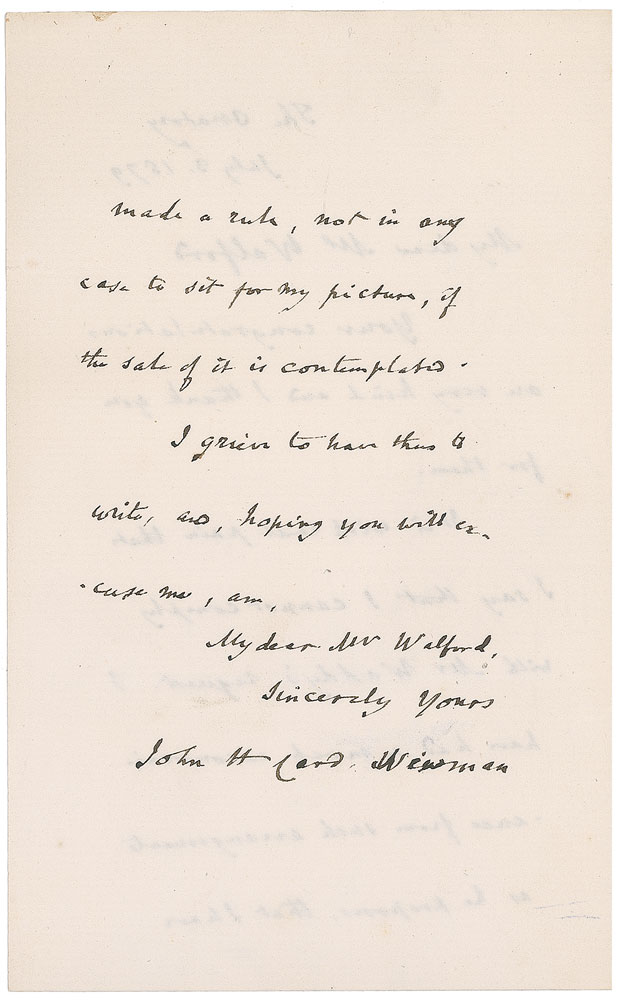 made a rule, not in any
case to sit for my picture, if
the sale of it is contemplated.
I grieve to have thus to
write, and, hoping you will ex-
-cuse me, am,
My dear Mr Walford,
Sincerely Yours
John H Card. Newman